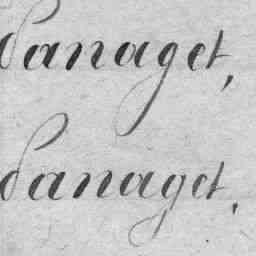 Danaget,
Danaget,